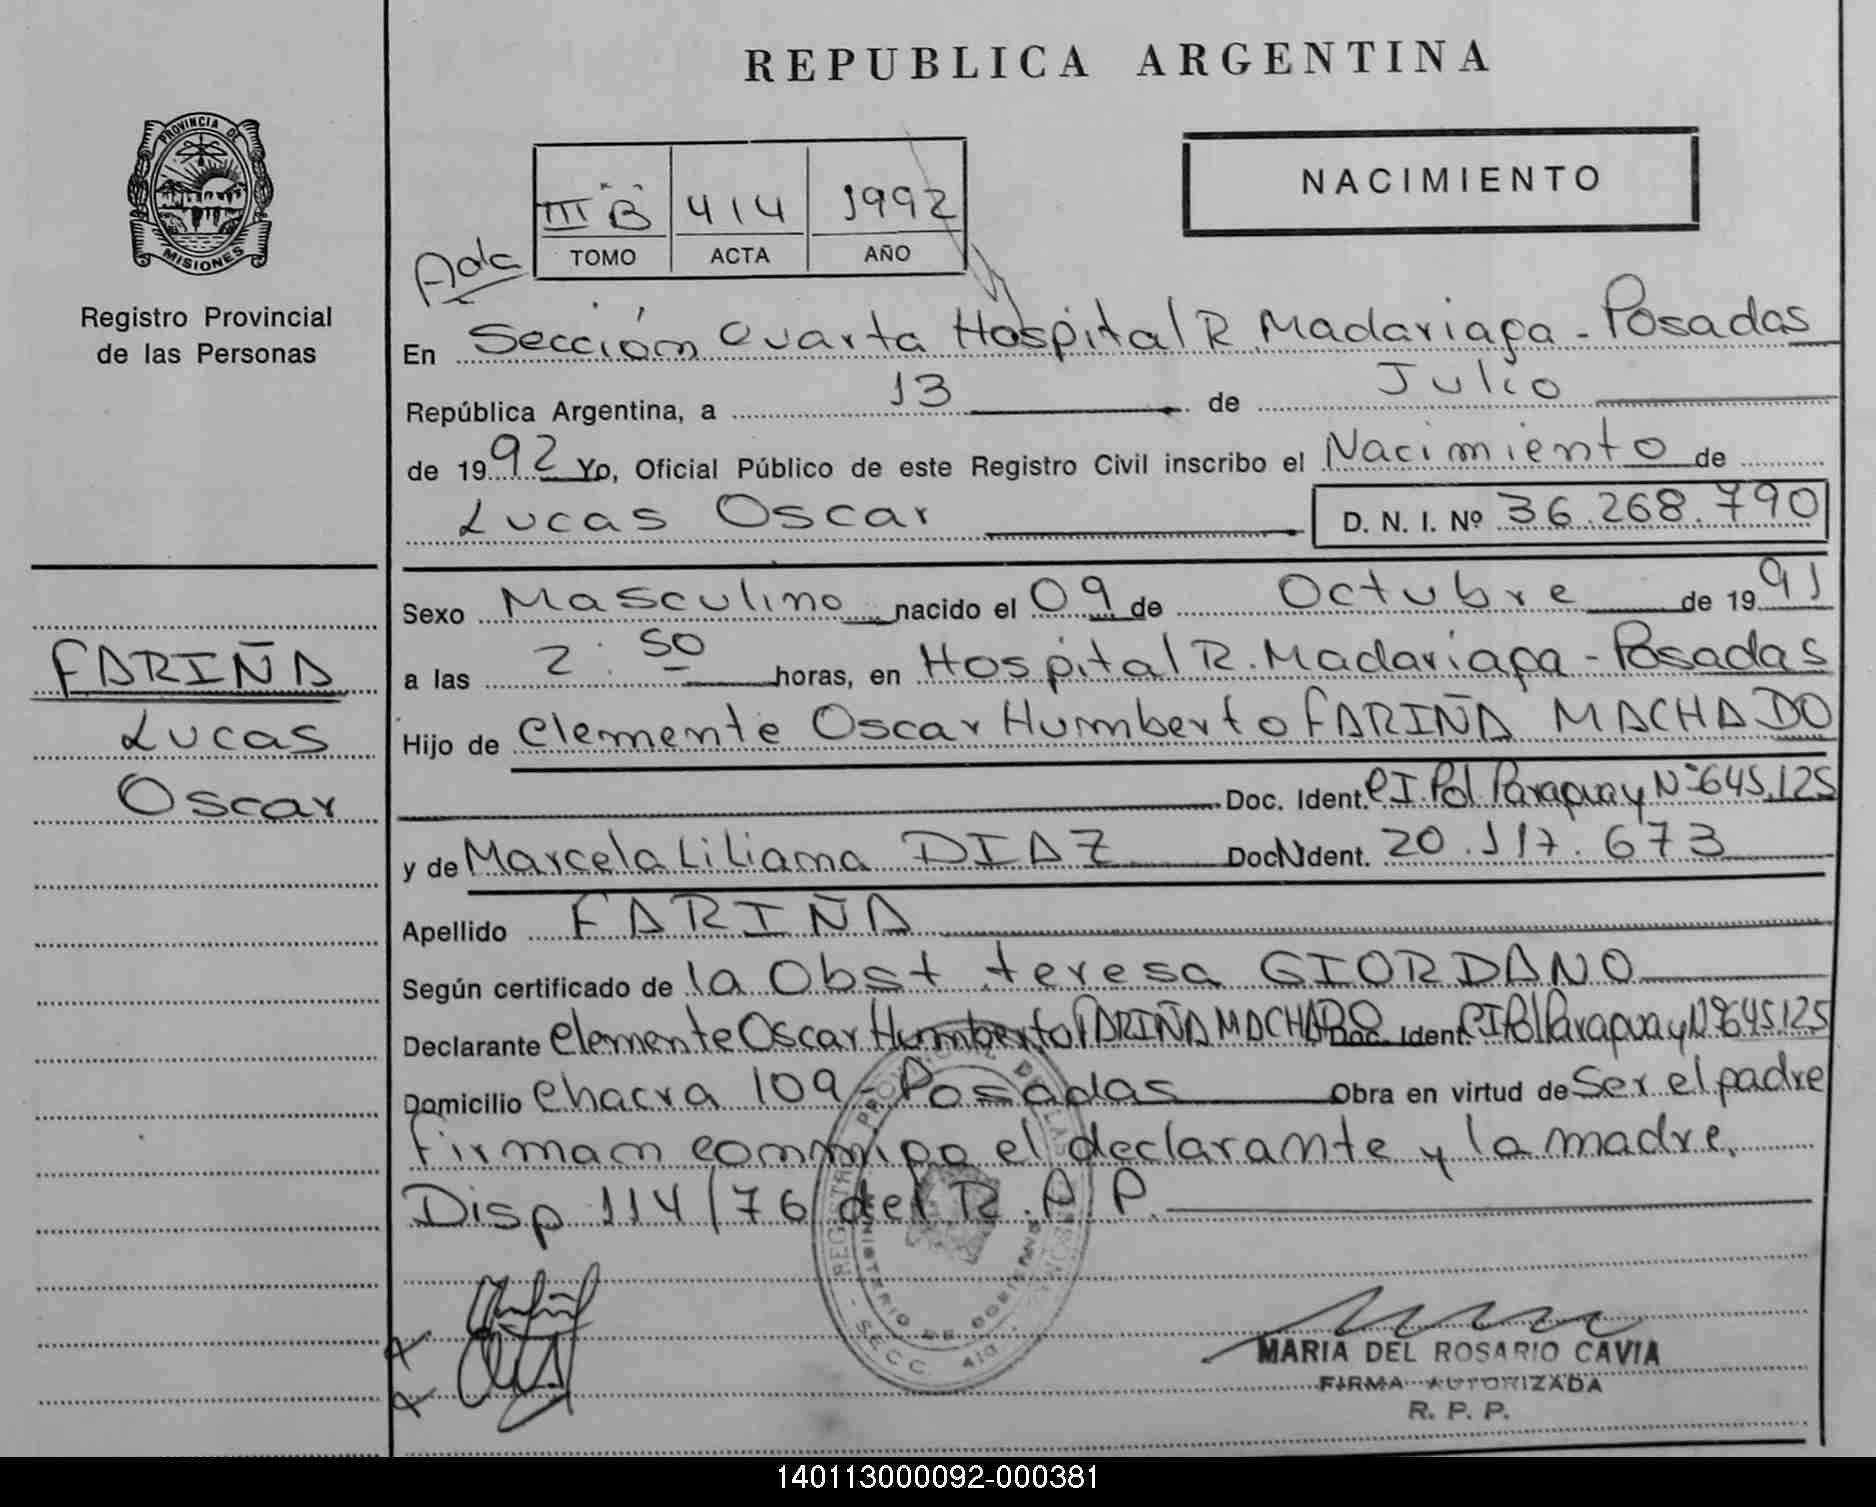 REPUBLICA ARGENTINA
PROVINCIA DE
MISIONES
Registro Provincial
de las Personas
NACIMIENTO
III B 414 1992
TOMO ACTA AÑO
En Sección Cuarta Hospital R. Madariaga - Posadas
República Argentina, a 13 de Julio
de 1992 Yo, Oficial Público de este Registro Civil inscribo el Nacimiento de
Lucas Oscar D. N. I. Nº 36.268.790
Sexo Masculino nacido el 09 de Octubre de 1991
FARIÑA
Lucas
Oscar
a las 2:50 horas, en Hospital R. Madariaga - Posadas
Hijo de Clemente Oscar Humberto FARIÑA MACHADO
Doc. Ident. C I. Pol Paraguay Nº 645.125
y de Marcela Liliana DIAZ Doc N Ident. 20.117.673
Apellido FARIÑA
Según certificado de la Obst. teresa GIORDANO
Declarante Clemente Oscar Humberto FARIÑA MACHADO Doc. Ident. C I Pol Paraguay Nº 645.125
Domicilio Chacra 109 - Posadas Obra en virtud de Ser el padre
Firman conmigo el declarante y la madre.
Disp. 114/76 del R. P. P.
MINISTERIO DE GOBIERNO
MARIA DEL ROSARIO CAVIA
FIRMA AUTORIZADA
R. P. P.
140113000092-000381